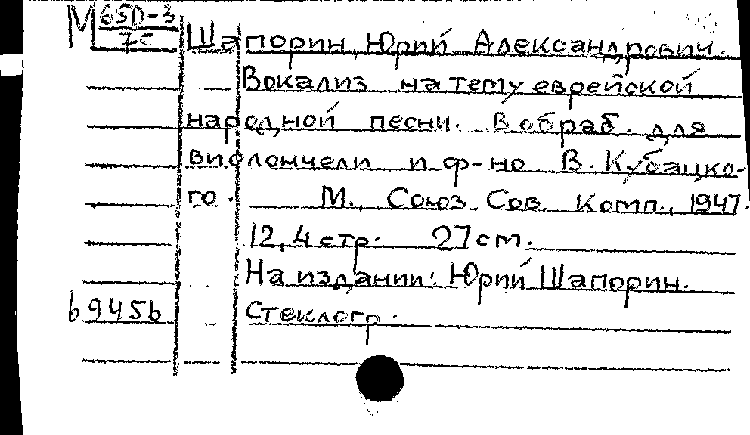 М 65D-3
Шапорин, Юрий Александрович.
Вокализ на тему еврейской
народной песни. В обраб. для
виолончели и ф-но В. Кубацко-
го. М., Союз Сов. Комп., 1947.
12, 4 стр. 27 см.
На издании: Юрий Шапорин.
69456 Стеклогр.